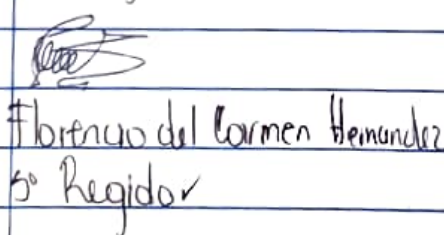 Florencio del Carmen Hernandez
5º Regidor